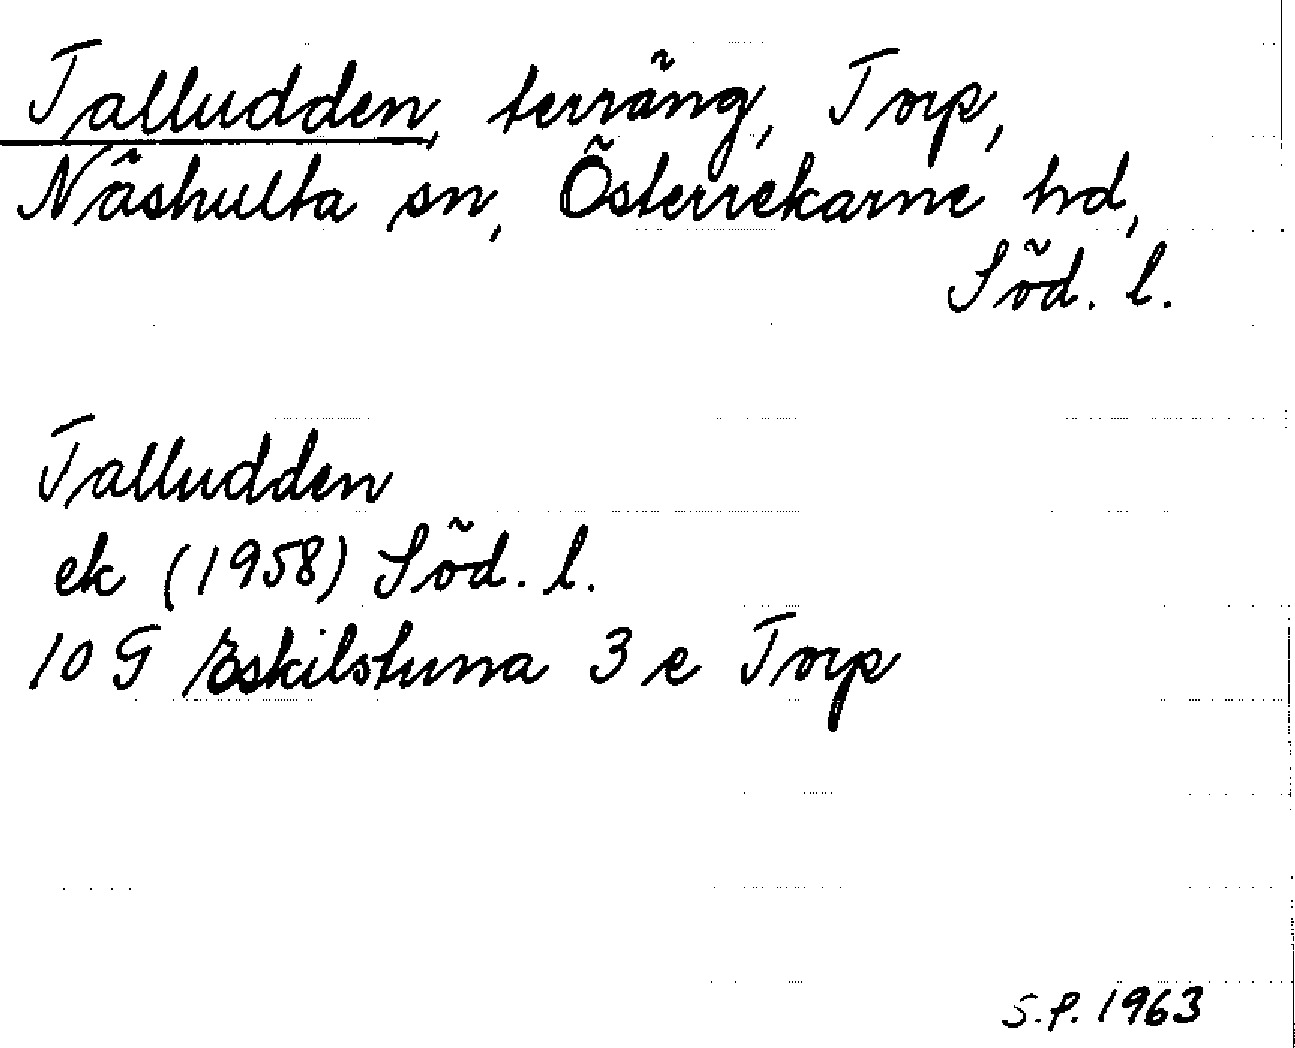 Talludden, terräng, Torp,
Näshulta sn, Österrekarne hd,
Söd. l.
Talludden
ek (1958) Söd. l.
10 G Eskilstuna 3 e Torp
S.P. 1963